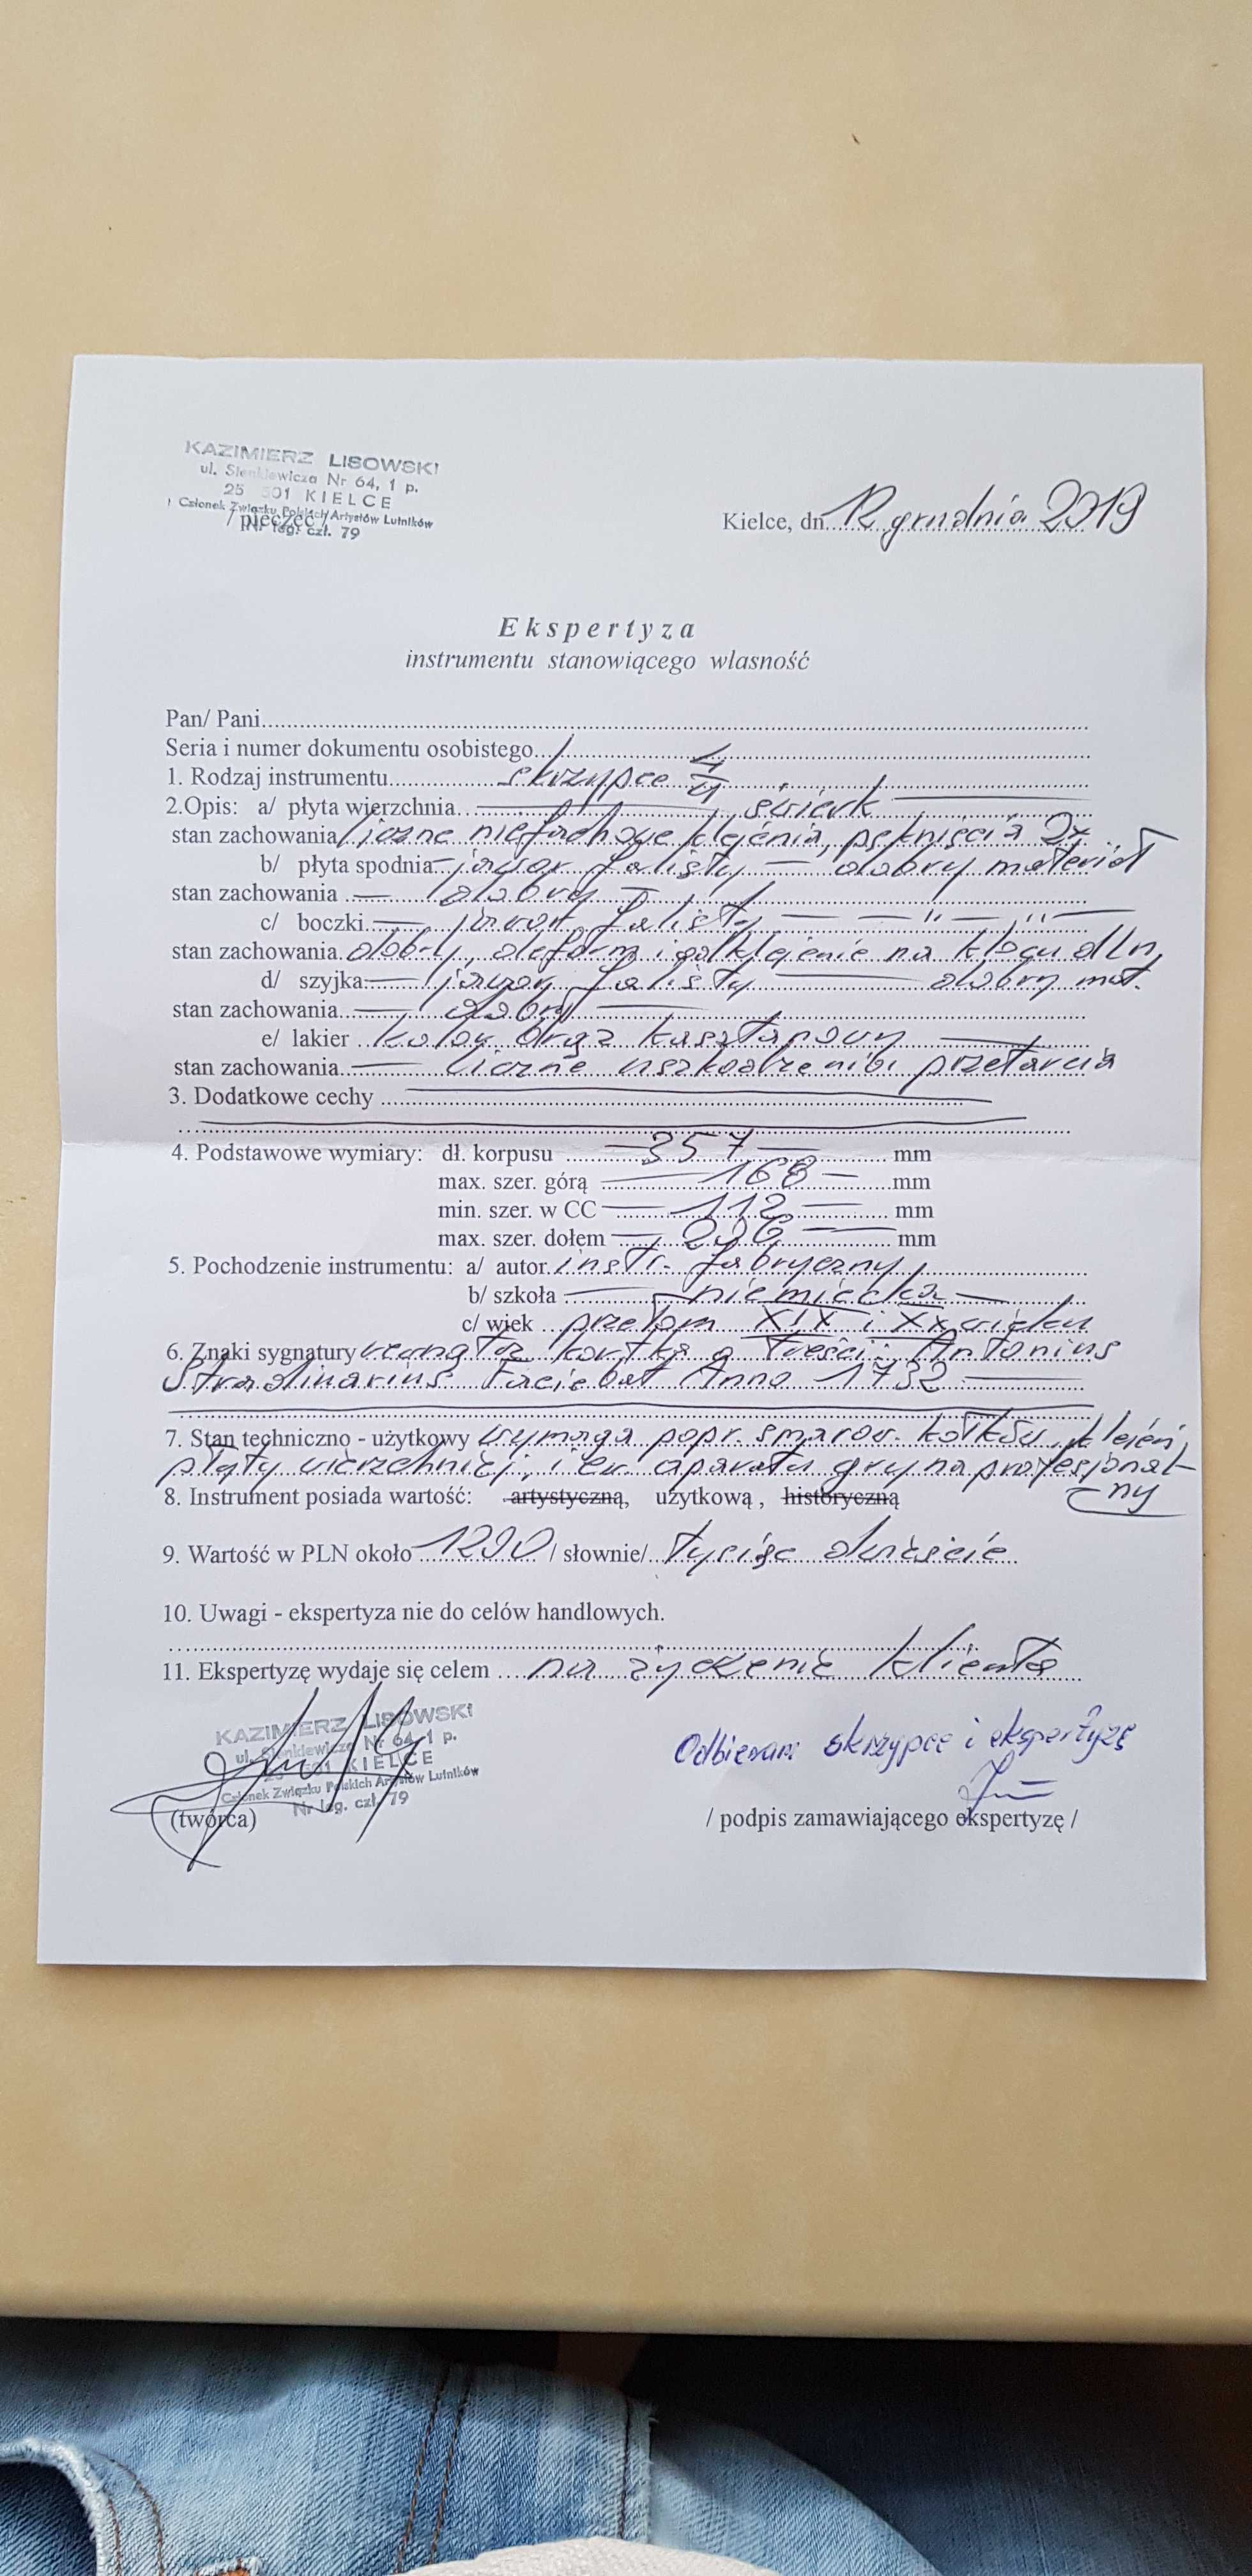 KAZIMIERZ LISOWSKI
ul. Sienkiewicza Nr 64, 1 p.
25 501 KIELCE
Członek Związku Polskich Artystów Lutników
/ pieczęć /
Nr leg. czł. 79
Kielce, dn. 12 grudnia 2019
Ekspertyza
instrumentu stanowiącego wlasność
Pan/ Pani
Seria i numer dokumentu osobistego
1. Rodzaj instrumentu skrzypce 4/4
2.Opis: a/ płyta wierzchnia świerk
stan zachowania liczne niefachowe klejenia, pęknięcia 2x
b/ płyta spodnia jawor falisty — dobry materiał
stan zachowania — dobry —
c/ boczki — jawor falisty — — " — " —
stan zachowania dobry, deform i odklejenie na klocu dln,
d/ szyjka — jawor falisty — dobry mat.
stan zachowania — dobry —
e/ lakier kolor brąz kasztanowy —
stan zachowania — liczne uszkodzenia i przetarcia
3. Dodatkowe cechy
4. Podstawowe wymiary: dł. korpusu — 357 — mm
max. szer. górą — 168 — mm
min. szer. w CC — 112 — mm
max. szer. dołem — 206 — mm
5. Pochodzenie instrumentu: a/ autor instr. fabryczny
b/ szkoła — niemiecka —
c/ wiek przełom XIX i XX wieku
6. Znaki sygnatury wewnątrz kartka o treści: Antonius
Stradivarius Faciebat Anno 1732 —
7. Stan techniczno - użytkowy wymaga popr. smarow. kołków, klejeń
płyty wierzchniej, i ew. aparatu gry na profesjonal-
ny
8. Instrument posiada wartość: artystyczną, użytkową , historyczną
9. Wartość w PLN około 1200 / słownie/ tysiąc dwieście
10. Uwagi - ekspertyza nie do celów handlowych.
11. Ekspertyzę wydaje się celem na życzenie klienta
KAZIMIERZ LISOWSKI
ul. Sienkiewicza Nr 64, 1 p.
25 501 KIELCE
Członek Związku Polskich Artystów Lutników
Nr leg. czł. 79
(twórca)
Odbieram skrzypce i ekspertyzę
/ podpis zamawiającego ekspertyzę /